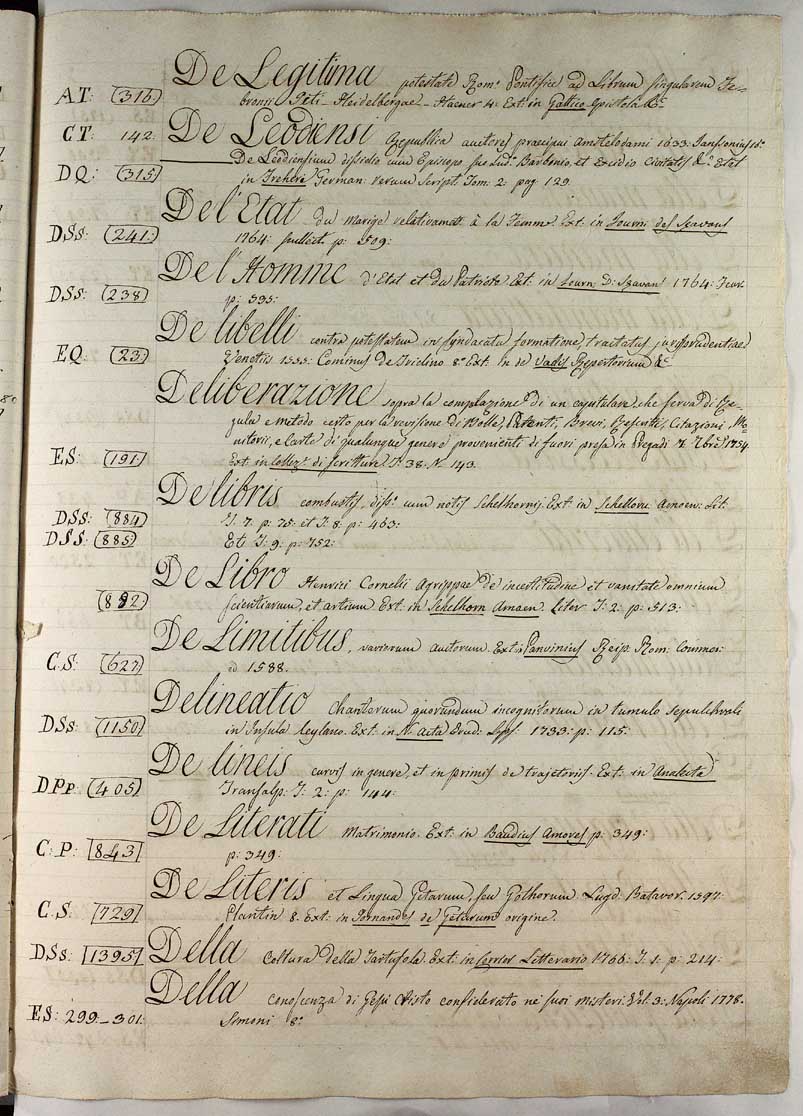 De Legitima potestate Rom: Pontificis ad Librum singularem Fe-
AT: (316) bronii Heidelbergae Haener 4: Ext: in Gallico Epistola &c
CT: 142: De Leodiensi Republica auctores praecipui Amstelodami 1633: Janssonius
De Leodiensium dissidio cum Episcopo suo Lud: Barbonio, et Excidio Civitatis &c: Extat
DQ: (315) in Freheri German: rerum Script: Tom: 2: pag: 129
De l'Etat du Mariage relativament à la Femme. Ext: in Journ: des Scavans
DSs: (241) 1764: Juillet: p: 509:
De l'Homme d'Etat et du Patriote Ext: in Journ: D: Scavans 1764:
DSs: (238) p: 595:
De libelli contra potestatem in syndacatu formatione, tractatus jurisprudentiae
EQ: (23) Venetiis 1555: Cominus De Tridino 8: Ext: in de Vadis Repertorium &c
Deliberazione sopra la compilazione di un capitulare, che serva di Re-
gula e metodo certo per la revisione di Bolle, Patenti, Brevi, Rescritti, Citazioni, Mo-
nitorii, e Carte di qualunque genere provenienti di fuori presa in Pregadi 7: 7bre 1754
ES: (191) Ext: in Collez: di scritture T: 38: N: 143:
De libris combustis, diss: cum notis Schelhornij. Ext: in Schellorn Amoen: Lit:
DSs: (884) T: 7: p: 75: et T: 8: p: 463:
DSS: (885) Et T: 9: p: 752:
De Libro Henrici Cornelii Agrippae de incertitudine et vanitate omnium
(882) scientiarum, et artium Ext: in Schelhorn Amoen. Liter T: 2: p: 513:
De Limitibus, variorum auctorum. Ext: Panvinius Reip: Rom: Commen:
C.S: (627) 1588.
Delineatio Characterum quorundum incognitorum in tumulo sepulchrali
DSs: (1150) in Insula Ceylano. Ext: in N: Acta Erud: Lyps: 1733: p: 115:
De lineis curvis in genere, et in primis de trajetoriis. Ext: in Analecta
DPp: (405) Transalp: T: 2: p: 144:
De Literati Matrimonio. Ext: in Baudius Amores p: 349:
C: P: 843 p: 349:
De Literis et Lingua Getarum, seu Gothorum. Lugd Batavor. 1597
C. S. 729 Plantin 8. Ext: in Jornandes de Getarum origine.
DSs: 1395 Della Coltura della Tartufola. Ext: in Corrier Litterario 1766: T: 1: p: 214:
Della Conoscenza di Gesù Cristo considerato ne suoi misteri: Vol: 3: Napoli 1778.
ES: 299_301: Simoni 8: